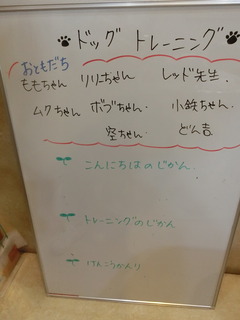 ドッグ トレーニング
おともだち
ももちゃん リリーちゃん レッド先生.
ムクちゃん ボブちゃん. 小鉄ちゃん.
空ちゃん. どん吉
こんにちはのじかん.
トレーニングのじかん
けんこうかんり